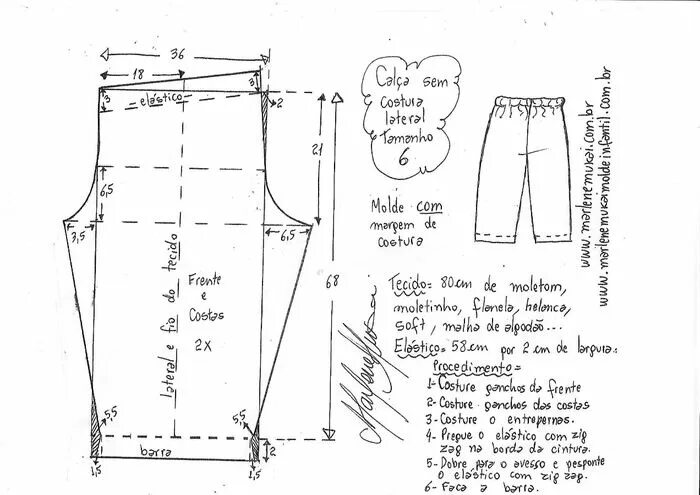 36
18
3
elástico
3
2
21
6,5
3,5
6,5
68
lateral e fio do tecido
Frente
e
Costas
2X
5,5
5,5
barra
2
1,5
1,5
Calça sem
Costura
lateral
Tamanho
6
Molde com
margem de
costura
www.marlenemukai.com.br
www.marlenemukaimoldeinfantil.com.br
Tecido= 80cm de moletom,
moletinho, flanela, helanca,
soft, malha de algodão...
Elástico= 58cm por 2cm de largura.
Procedimento=
1- Costure ganchos da frente
2- Costure ganchos das costas
3- Costure o entrepernas.
4- Pregue o elástico com zig
zag na borda da cintura.
5- Dobre para o avesso e pesponte
o elástico com zig zag.
6- Faça a barra.